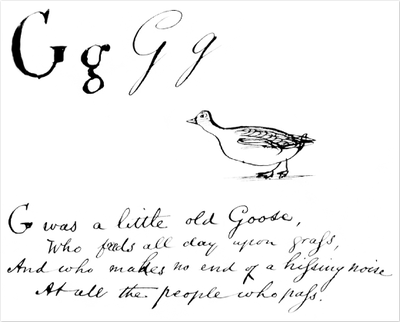 G g G g
G was a little old Goose,
Who feeds all day upon grass,
And who makes no end of a hissing noise
At all the people who pass.